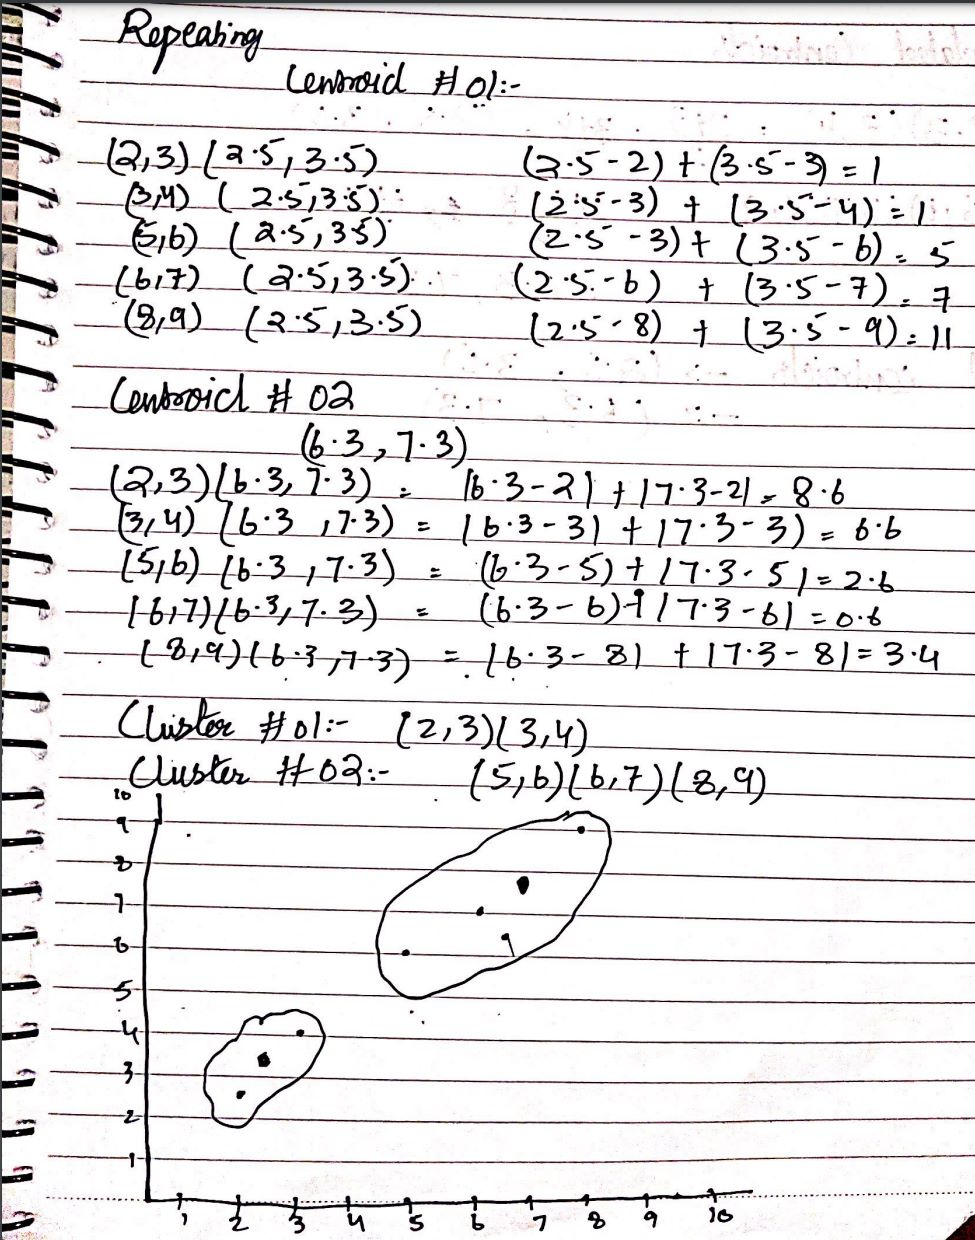 Repeating
Centroid # 01:-
(2,3) (2.5, 3.5) (2.5-2) + (3.5-3) = 1
(3,4) ( 2.5,3.5) (2.5-3) + (3.5-4) = 1
(5,6) ( 2.5,3.5) (2.5-3) + (3.5-6) = 5
(6,7) (2.5,3.5) (2.5-6) + (3.5-7) = 7
(8,9) (2.5,3.5) (2.5-8) + (3.5-9) = 11
Centroid # 02
(6.3, 7.3)
(2,3)(6.3, 7.3) = |6.3-2| + |7.3-2| = 8.6
(3,4) (6.3, 7.3) = |6.3-3| + |7.3-3) = 6.6
(5,6) (6.3, 7.3) = (6.3-5) + |7.3-5| = 2.6
(6,7)(6.3, 7.3) = (6.3-6) + |7.3-6| = 0.6
(8,9)(6.3,7.3) = |6.3-8| + |7.3-8| = 3.4
Cluster #01:- (2,3)(3,4)
Cluster #02:- (5,6)(6,7)(8,9)
10
9
8
7
6
5
4
3
2
1
1 2 3 4 5 6 7 8 9 10